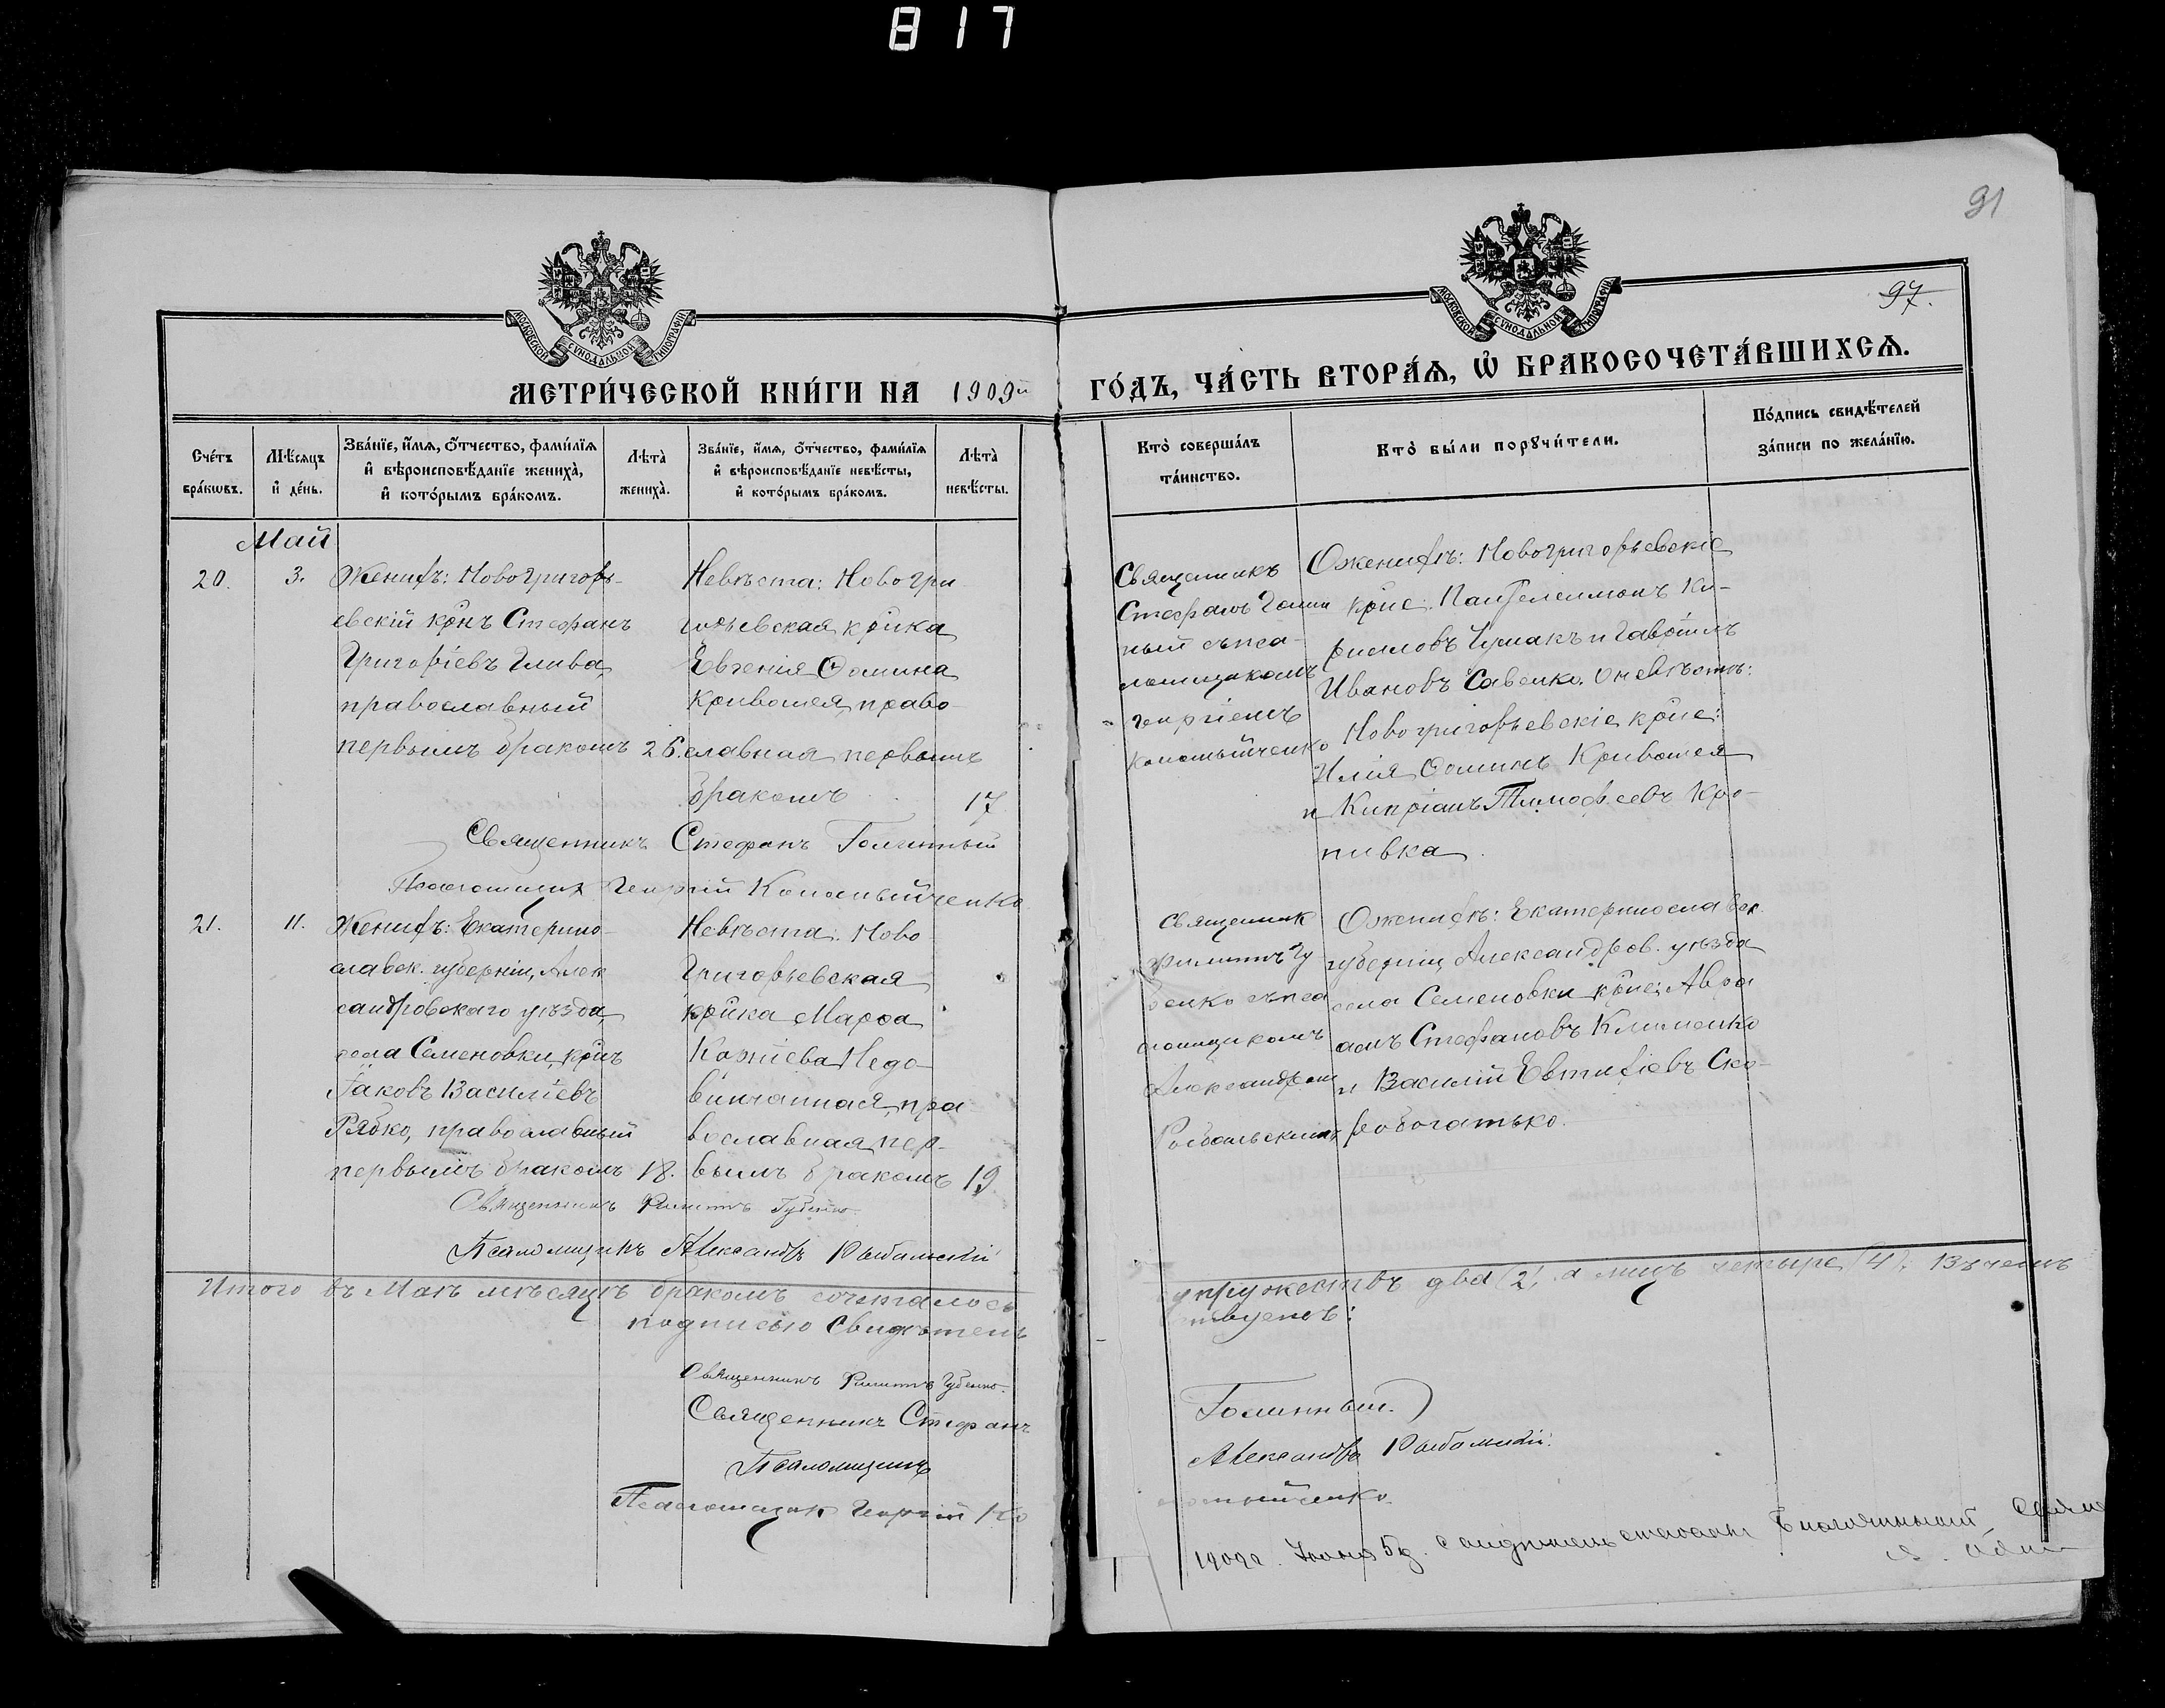 817
91
97.
МОСКОВСКОЙ СѴНОДАЛЬНОЙ ТИПОГРАФІИ
МОСКОВСКОЙ СѴНОДАЛЬНОЙ ТИПОГРАФІИ
МЕТРИ́ЧЕСКОЙ КНИ́ГИ НА 1909й
ГО́ДЪ, ЧА́СТЬ ВТОРА́Ѧ, Ѡ҆ БРАКОСОЧЕТА́ВШИХСѦ.
Сче́тъ бра́кѡвъ.
Мѣ́сяцъ и҆ де́нь.
Зва́нїе, и҆́мя, ѻ҆́тчество, фами́лїя
и҆ вѣроисповѣ́данїе жениха̀,
и҆ кото́рымъ бра́комъ.
Лѣта̀ жениха̀.
Зва́нїе, и҆́мя, ѻ҆́тчество, фами́лїя
и҆ вѣроисповѣ́данїе невѣ́сты,
и҆ кото́рымъ бра́комъ.
Лѣта̀ невѣ́сты.
Кто̀ соверша́лъ та́инство.
Кто̀ бы́ли порꙋчи́тели.
По́дпись свидѣ́телей за́писи по жела́нїю.
Май
20.
3.
Женихъ: Новогригорь-
евскій крнъ Стефанъ
Григоріевъ Глива,
православный
первымъ бракомъ
26.
Невѣста: Новогри
горьевская крйка
Евгенія Ѳомина
Кривошея, право-
славная первымъ
бракомъ
17
Священникъ
Стефанъ Голин
ный съ пса-
ломщикомъ
Георгіемъ
Коломыйченко
О женихѣ: Новогригорьевскіе
крне: Пантелеимонъ Ки-
рилловъ Чумакъ и Гавріилъ
Ивановъ Савенко. О невѣстѣ:
Новогригорьевскіе крне:
Илія Ѳоминъ Кривошея
и Кипріанъ Тимофеевъ Кро-
пивка.
Священникъ Стефанъ Голинный
Псаломщикъ Георгій Коломыйченко
21.
11.
Женихъ: Екатерино-
славск. губерніи, Алек
сандровскаго уѣзда,
села Семеновки, крнъ
Іаковъ Василіевъ
Рябко, православный
первымъ бракомъ
18.
Невѣста: Ново
Григорьевская
крйка Марѳа
Недо-
винчанная, пра
вославная, пер-
вымъ бракомъ
19
Священник
Филиппъ Гу
бенко съ пса
ломщикомъ
Александромъ
Рыбальскимъ
О женихѣ: Екатеринославск.
губерніи, Александров. уѣзда
села Семеновки крне: Авра
амъ Стефановъ Клименко
и Василій Евтихіевъ Ско-
робогатько.
Священникъ Филиппъ Губенко
Псаломщикъ Александръ Рыбальскій
Итого въ Маѣ мѣсяцѣ бракомъ сочеталось
супружествъ два (2), а лицъ четыре (4). Въ чемъ
подписью свидѣтель
ствуемъ:
Священникъ Филиппъ Губенко.
Священникъ Стефанъ Голинный.
Псаломщикъ Александръ Рыбальскій.
Псаломщикъ Георгій Коломыйченко.
1909 г. Іюня 5 д.